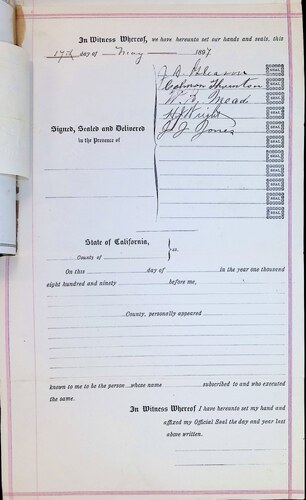 In Witness Whereof, we have hereunto set our hands and seals, this
17th day of May 1897
J. B.
SEAL
Colman Thornton
SEAL
W. H. Mead
SEAL
Wright
SEAL
J. J. Jones
SEAL
Signed, Sealed and Delivered
in the Presence of
SEAL
SEAL
SEAL
SEAL
SEAL
SEAL
State of California,
County of } ss.
On this day of in the year one thousand
eight hundred and ninety before me,
County, personally appeared
known to me to be the person whose name subscribed to and who executed
the same.
In Witness Whereof I have hereunto set my hand and
affixed my Official Seal the day and year last
above written.